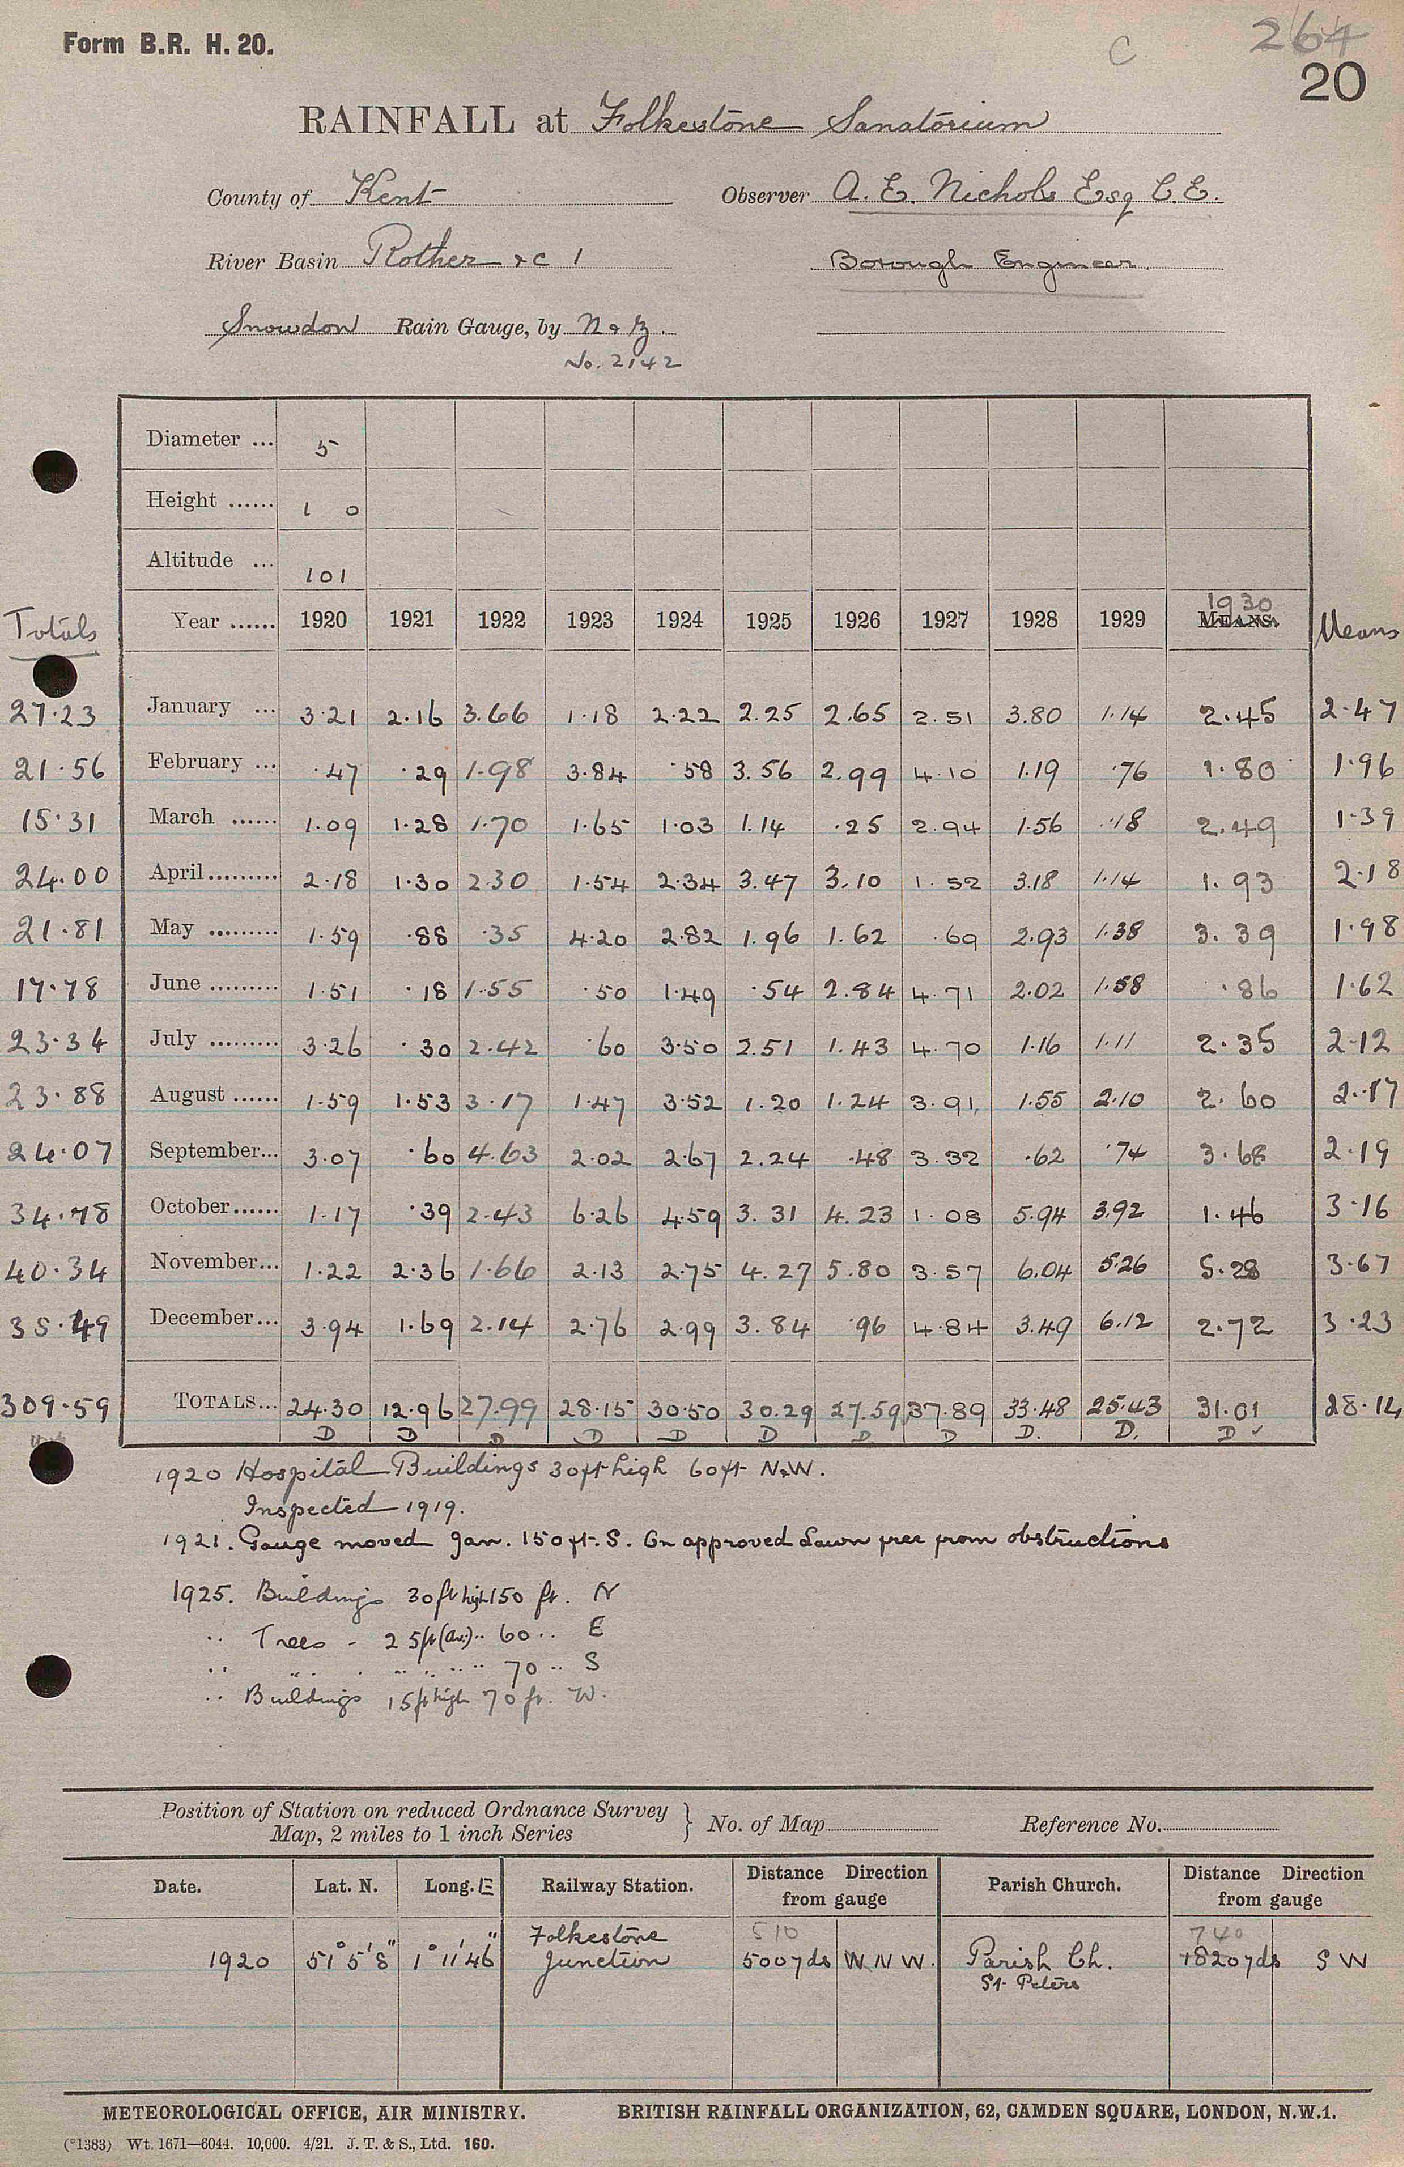 Form B.R. H. 20.
C
264
20
RAINFALL at Folkestone Sanatorium
County of Kent Observer A. E. Nichols Esq C.E.
River Basin Rother &c 1 Borough Engineer.
Snowdon Rain Gauge, by N & Z.
No. 2142
Diameter ... 5
Height ...... 1 0
Altitude ... 101
1930
Totals Year ...... 1920 1921 1922 1923 1924 1925 1926 1927 1928 1929 MEANS. Means
27.23 January ... 3.21 2.16 3.66 1.18 2.22 2.25 2.65 2.51 3.80 1.14 2.45 2.47
21.56 February ... .47 .29 1.98 3.84 .58 3.56 2.99 4.10 1.19 .76 1.80 1.96
15.31 March ...... 1.09 1.28 1.70 1.65 1.03 1.14 .25 2.94 1.56 .18 2.49 1.39
24.00 April ......... 2.18 1.30 2.30 1.54 2.34 3.47 3.10 1.52 3.18 1.14 1.93 2.18
21.81 May ......... 1.59 .88 .35 4.20 2.82 1.96 1.62 .69 2.93 1.38 3.39 1.98
17.78 June ......... 1.51 .18 1.55 .50 1.49 .54 2.84 4.71 2.02 1.58 .86 1.62
23.34 July ......... 3.26 .30 2.42 .60 3.50 2.51 1.43 4.70 1.16 1.11 2.35 2.12
23.88 August ...... 1.59 1.53 3.17 1.47 3.52 1.20 1.24 3.91 1.55 2.10 2.60 2.17
24.07 September... 3.07 .60 4.63 2.02 2.67 2.24 .48 3.32 .62 .74 3.68 2.19
34.78 October...... 1.17 .39 2.43 6.26 4.59 3.31 4.23 1.08 5.94 3.92 1.46 3.16
40.34 November... 1.22 2.36 1.66 2.13 2.75 4.27 5.80 3.57 6.04 5.26 5.28 3.67
35.49 December... 3.94 1.69 2.14 2.76 2.99 3.84 .96 4.84 3.49 6.12 2.72 3.23
309.59 TOTALS... 24.30 12.96 27.99 28.15 30.50 30.29 27.59 37.89 33.48 25.43 31.01 28.14
D D D D D D D D D. D. D ✓
1920 Hospital Buildings 30ft high 60ft N.W.
Inspected 1919.
1921. Gauge moved Jan. 150 ft. S. On approved Lawn free from obstructions
1925. Buildings 30 ft high 150 ft. N
.. Trees - 25ft (av.) .. 60 .. E
.. .. . .. .. .. .. 70 .. S
.. Buildings 15ft high 70 ft. W.
Position of Station on reduced Ordnance Survey
Map, 2 miles to 1 inch Series } No. of Map Reference No.
Date. Lat. N. Long. E Railway Station. Distance Direction from gauge Parish Church. Distance Direction from gauge
Folkestone 510 740
1920 51° 5' 8" 1° 11' 46" Junction 500 yds W N W. Parish Ch. 820 yds S W
St. Peters
METEOROLOGICAL OFFICE, AIR MINISTRY. BRITISH RAINFALL ORGANIZATION, 62, CAMDEN SQUARE, LONDON, N.W.1.
(*1383) Wt. 1671—6044. 10,000. 4/21. J. T. & S., Ltd. 160.